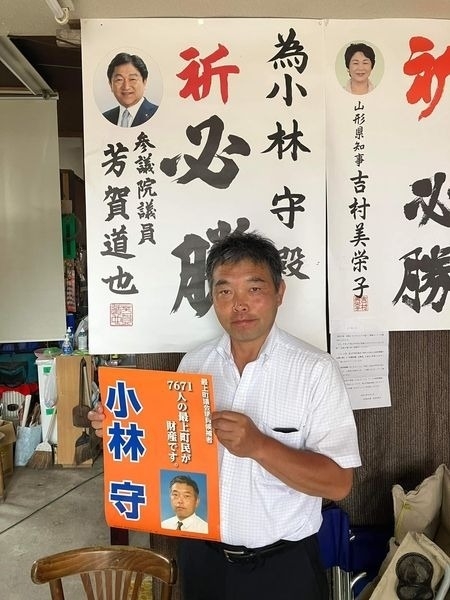 為小林守殿
祈必勝
参議院議員
芳賀道也
祈必勝
山形県知事
吉村美栄子
最上町議会議員候補者
7671
人の最上町民が
財産です。
小林守